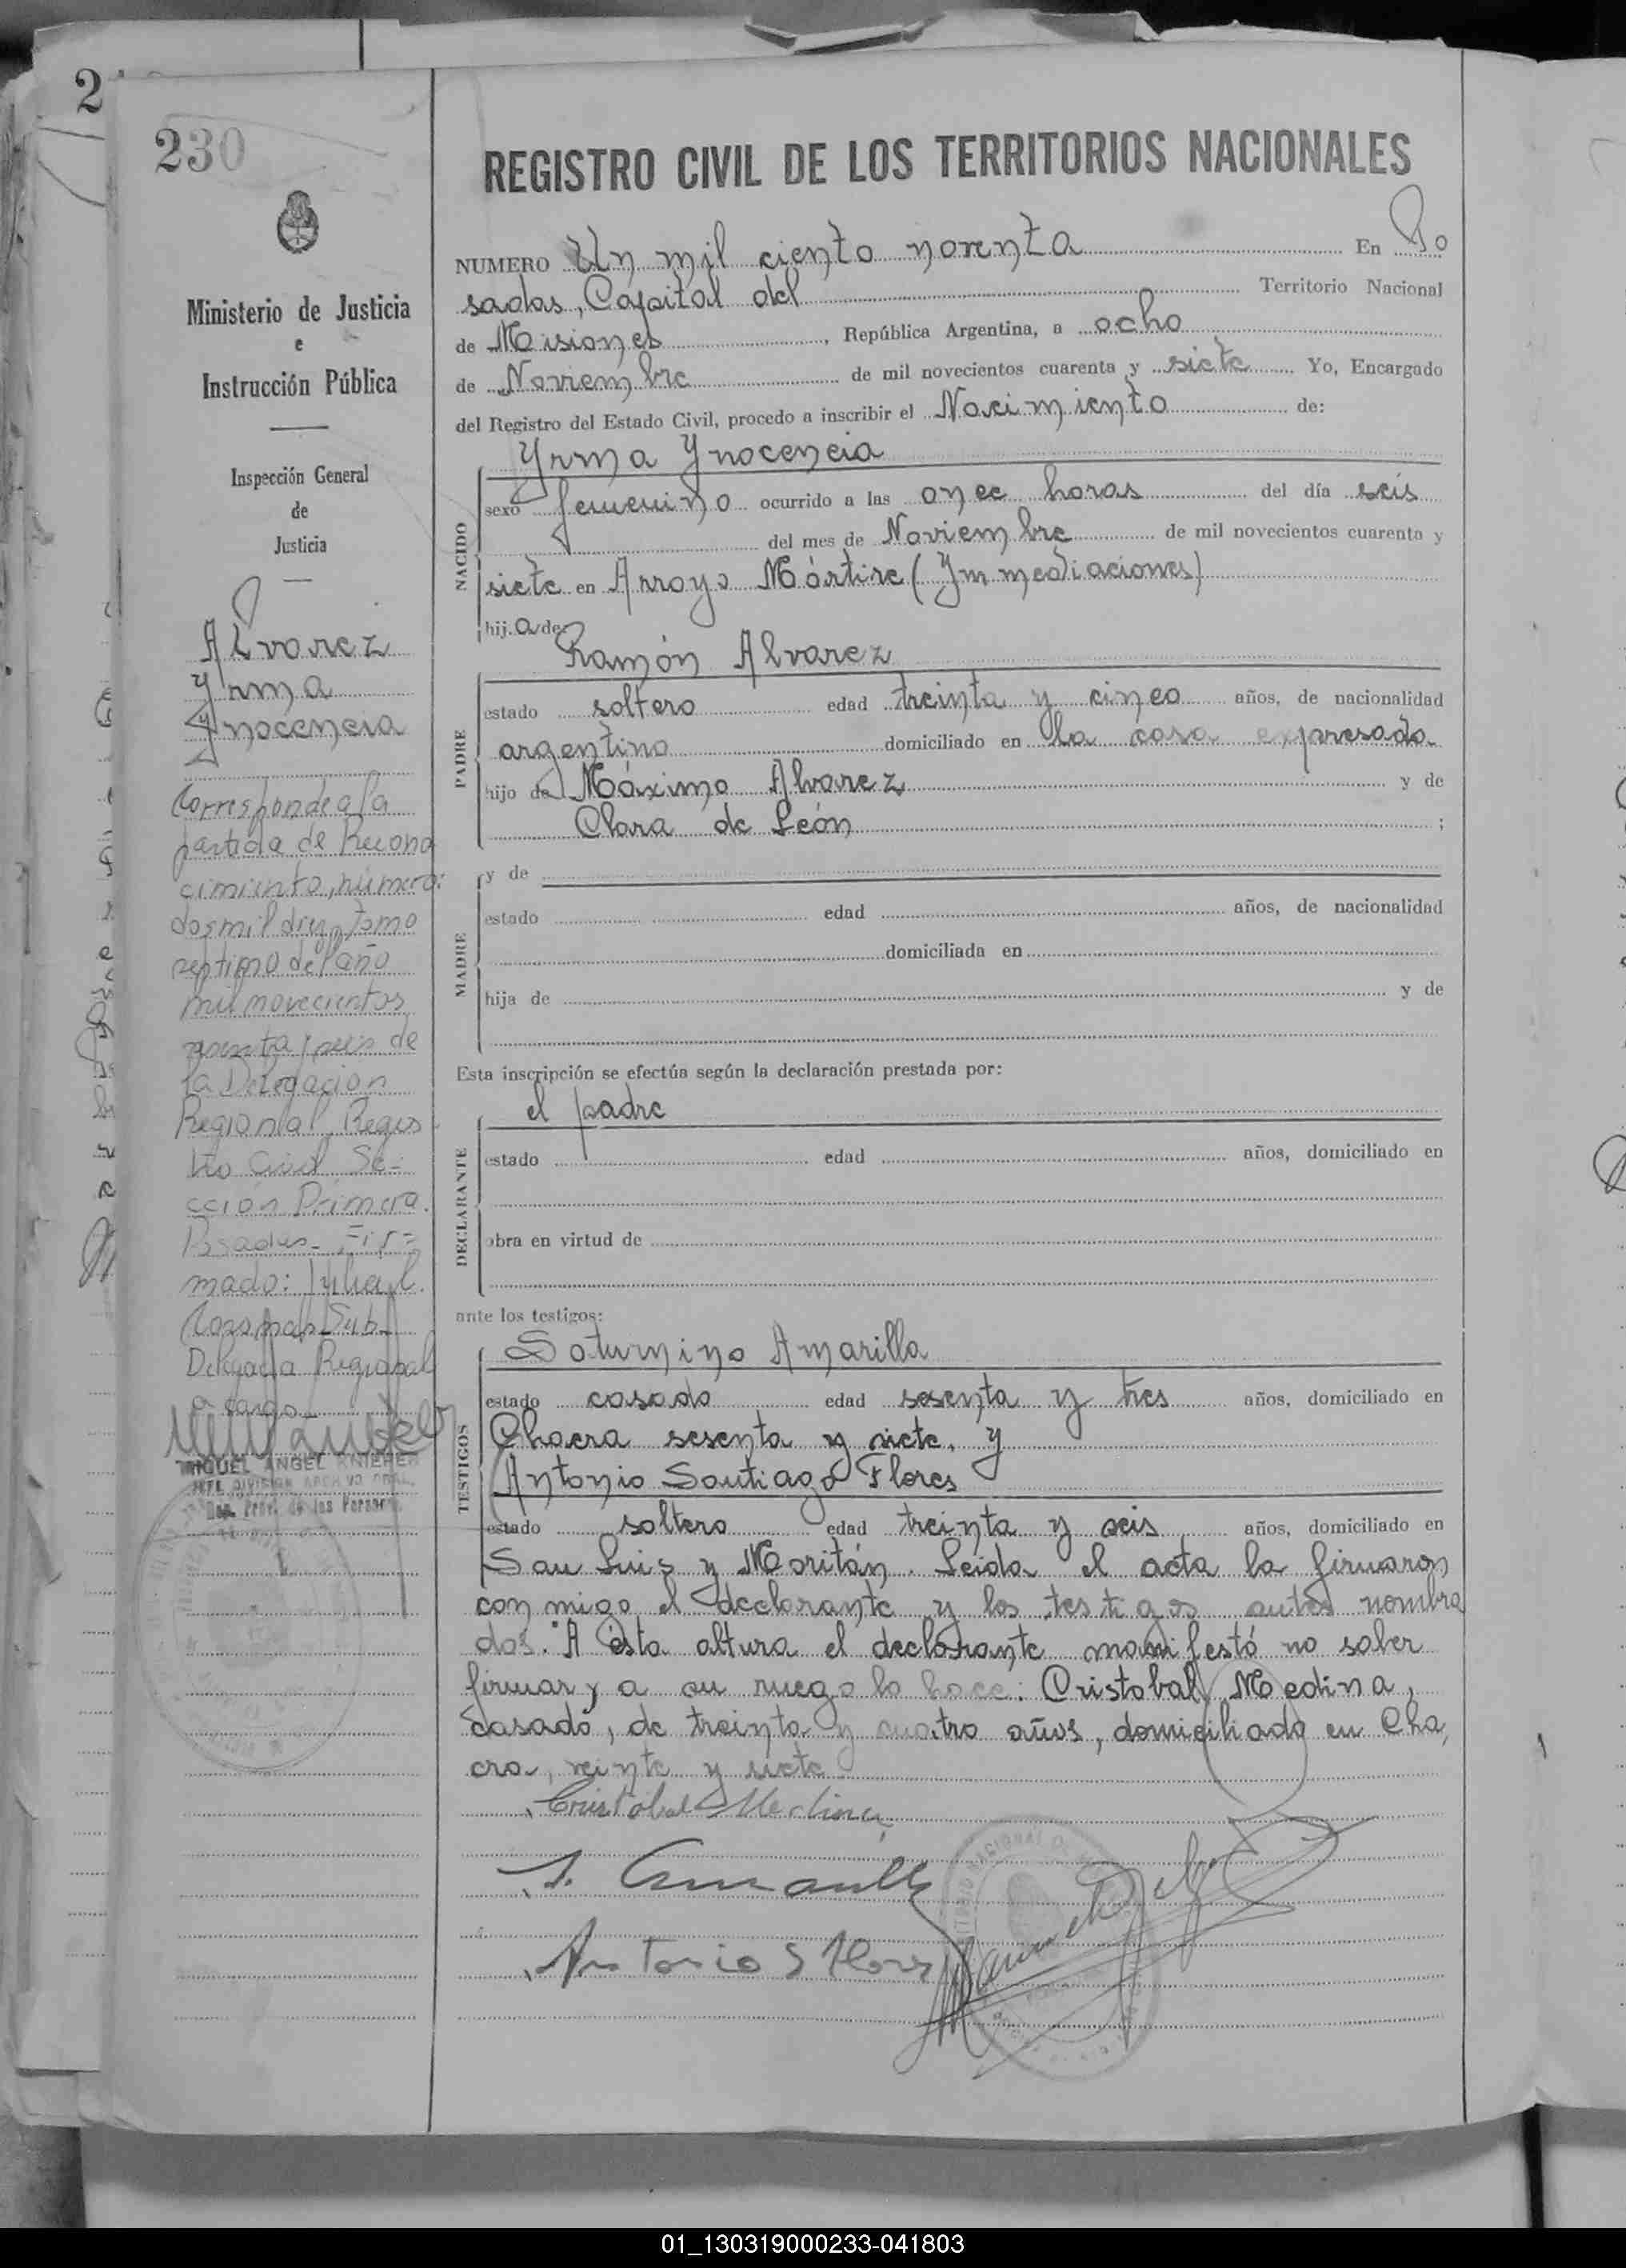 2
230
Ministerio de Justicia
e
Instrucción Pública
Inspección General
de
Justicia
Alvarez
Yrma
Ynocencia
Corresponde a la
partida de Recono
cimiento, número:
dos mil diez, tomo
septimo del año
mil novecientos
noventa y seis de
la Delegación
Regional Regis
tro Civil Se-
cción Primera.
Posadas- Fir=
mado:
Sub-
Delegada Regional
a cargo-
MIGUEL ANGEL KNIEREM
JEFE DIVISION ARCHIVO GRAL.
Reg. Prov. de las Personas
REGISTRO CIVIL DE LOS TERRITORIOS NACIONALES
NUMERO Un mil ciento noventa En Po
sadas, Capital del Territorio Nacional
de Misiones, República Argentina, a ocho
de Noviembre de mil novecientos cuarenta y siete Yo, Encargado
del Registro del Estado Civil, procedo a inscribir el Nacimiento de:
NACIDO
Yrma Ynocencia
sexo femenino ocurrido a las once horas del día seis
del mes de Noviembre de mil novecientos cuarenta y
siete en Arroyo Mártire (Ynmediaciones)
hij.a de:
PADRE
Ramón Alvarez
estado soltero edad treinta y cinco años, de nacionalidad
argentino domiciliado en la casa expresada
hijo de Máximo Alvarez y de
Clara de León ;
MADRE
y de
estado edad años, de nacionalidad
domiciliada en
hija de y de
Esta inscripción se efectúa según la declaración prestada por:
DECLARANTE
el padre
estado edad años, domiciliado en
obra en virtud de
ante los testigos:
TESTIGOS
Saturnino Amarilla
estado casado edad sesenta y tres años, domiciliado en
Chacra sesenta y siete, y
Antonio Santiago Flores
estado soltero edad treinta y seis años, domiciliado en
San Luis y Moritán. Leida el acta la firmaron
conmigo el declarante y los testigos antes nombra
dos. "A ésta altura el declarante manifestó no saber
firmar y a su ruego lo hace: Cristobal Medina,
casado, de treinta y cuatro años, domiciliado en Cha
cra, veinte y siete
Cristobal Medina
S. Amarilla
Antonio S Flores
01_130319000233-041803